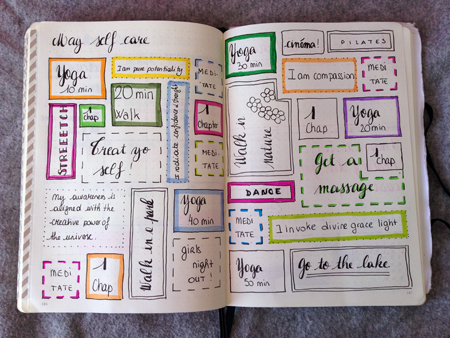 May self care
Yoga
10 min
I am pure potentiality
MEDI
TATE
STREEETCH
1
Chap
20 min
Walk
I radiate confidence & strength
1
Chapter
Treat yo
self
MEDI
TATE
My awareness is
aligned with the
creative power of
the universe.
Walk in a park
Yoga
40 min
MEDI
TATE
1
Chap
girls
night
OUT!
Yoga
30 min
cinéma!
PILATES
I am compassion
MEDI
TATE
Walk in
nature
1
Chap
Yoga
20 min
Get a
massage
1
Chap
DANCE
MEDI
TATE
I invoke divine grace light
Yoga
50 min
Go to the lake